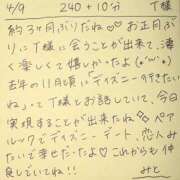 4/9 240+10分 T様
約3ヶ月ぶりだね♡♡お正月ぶ
りにT様に会うことが出来て、凄
く楽しくて嬉しかったよ(*´ω`*)
去年の11月頃に「ディズニー行きたい
ね」ってT様とお話していて、今日
実現することが出来たね ペア
ルックでディズニーデート、恋人み
たいで幸せだったよ♡これからも仲
良くしていね!!
みと